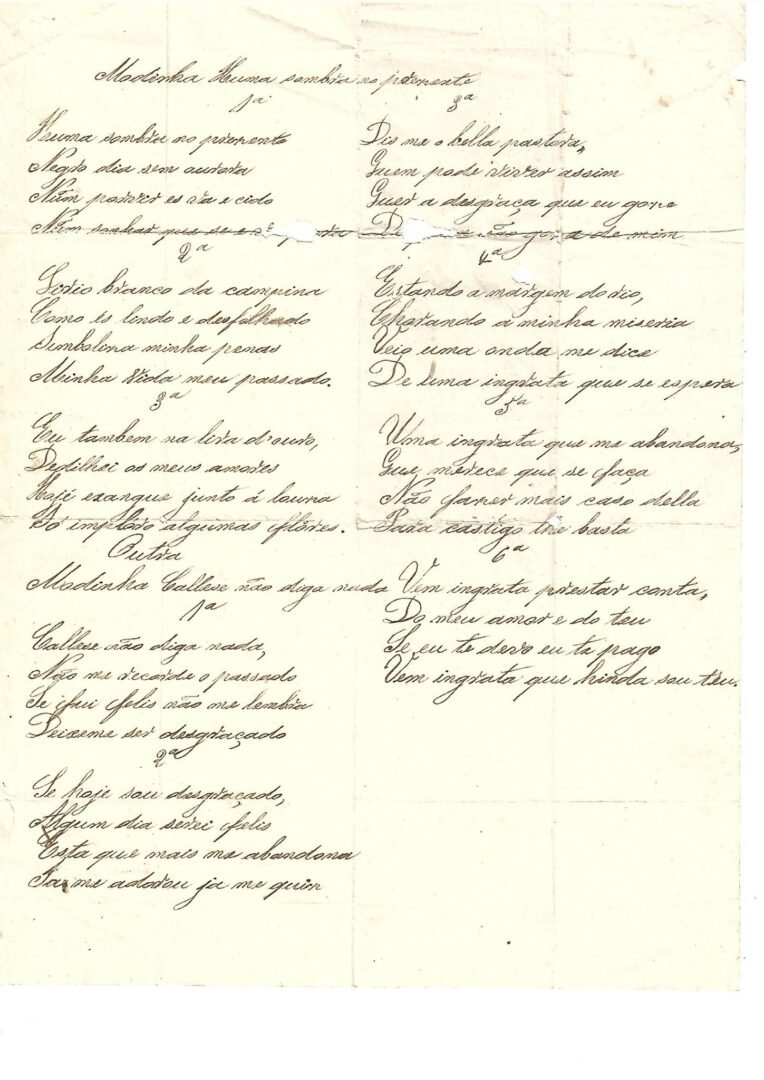 Modinha Huma sombra no prezente
1ª
Huma sombra no prezente
Negro dia sem aurora
Num porvir es va e cido
Num sonhar que se e
2ª
Lirio branco da campina
Como és lindo e desfolhado
Simbolina minha penas
Minha Vida meu passado.
3ª
Eu tambem na lira d'ouro,
Dedilhei os meus amores
Hojé exangue junto á lousa
Só imploro algumas flôres.
Outra
Modinha Callese não diga nada
1ª
Callese não diga nada,
Não me recorde o passado
Se fui felis não me lembra
Deixeme ser desgraçado
2ª
Se hoje sou desgraçado,
Algum dia serei felis
Esta que mais me abandona
Ja me adorou ja me quiz
3ª
Dis me o bella pastora,
Quem pode viver assim
Quer a desgraça que eu goze
não goza de mim
4ª
Estando a margem do rio,
Chorando a minha miseria
Veio uma onda me dice
De uma ingrata que se espera
5ª
Uma ingrata que me abandona,
Que merece que se faça
Não fazer mais caso della
Para castigo lhe basta
6ª
Vem ingrata prestar conta,
Do meu amor e do teu
Se eu te devo eu te pago
Vem ingrata que hinda sou teu.